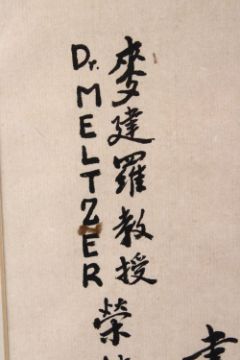 麥建羅教授榮
Dr. MELTZER